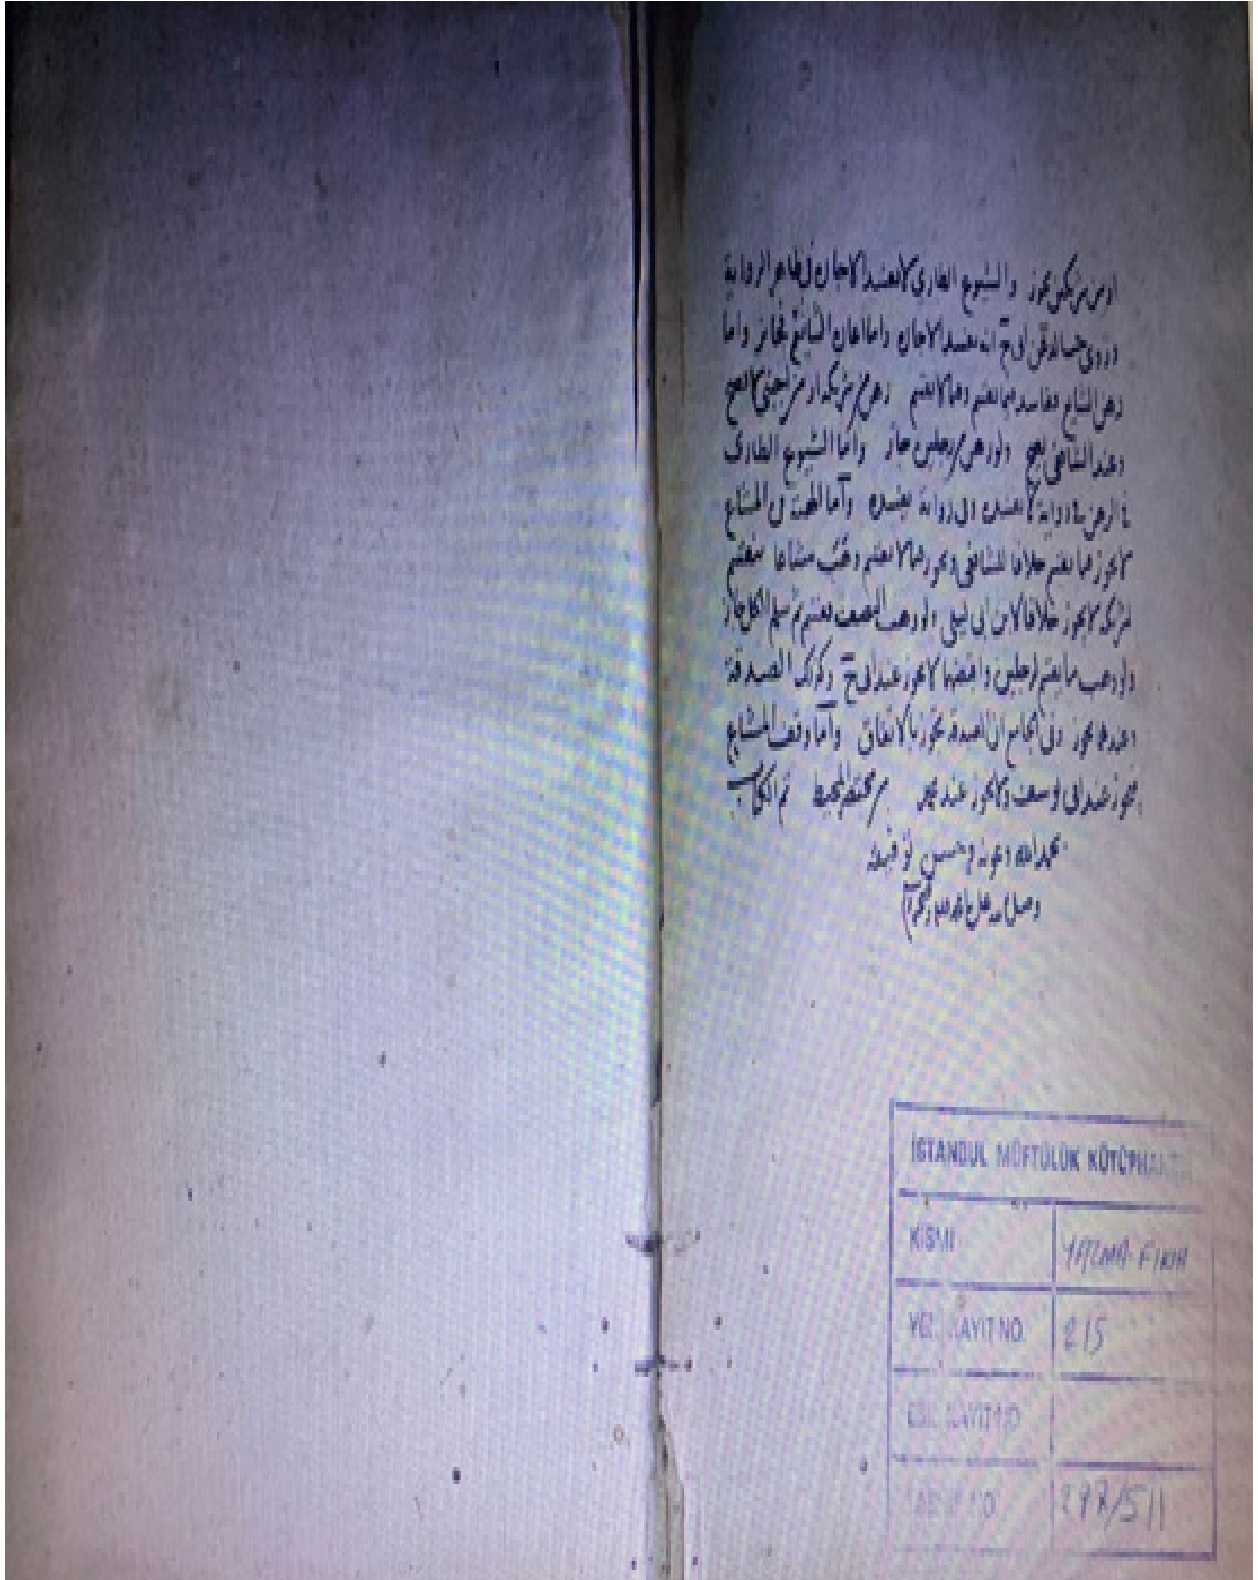 او من شريكه يجوز والشيوع الطارى لا يفسد الاجارة فى ظاهر الرواية
وروى عن ابى ح انه يفسد الاجارة واما اعارة الشايع فجايز واما
رهن الشايع ففاسد فيما يقسم وفيما لا يقسم رهن من شريكه او من اجنبى لا يصح
وعند الشافعى يصح ولو رهن من رجلين جاز واما الشيوع الطارى
فى الرهن فى رواية لا يفسده وفى رواية يفسده واما الهبة فى المشاع
لا يجوز فيما يقسم خلافا للشافعى ويجوز فيما لا يقسم وهب مشاعا يقسم
لشريكه لا يجوز خلافا لابن ابى ليلى ولو وهب النصف يقسم ثم سلم الكل جاز
ولو وهب ما يقسم لرجلين واقبضها لا يجوز عند ابى ح وكذلك الصدقة
وعندهما يجوز وفى الجامع ان الصدقة يجوز بالاتفاق واما وقف المشاع
يجوز عند ابى يوسف ولا يجوز عند محمد من مختصر المحيط تم الكتاب
بحمد الله وعونه وحسن توفيقه
وصلى الله على
İSTANBUL MÜFTÜLÜK KÜTÜPHANESİ
KISMI YAZMA-FIKIH
YENİ KAYIT NO. 215
ESKİ KAYIT NO
TASNİF NO. 297/511